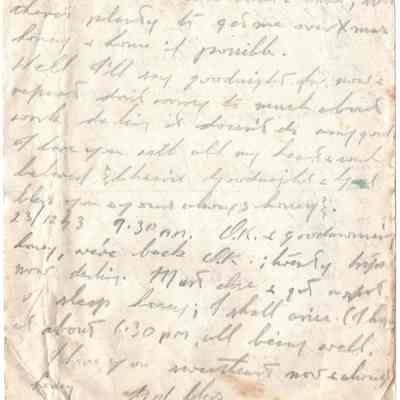 there's plenty to get me over Xmas
honey & home if possible.
Well I'll say goodnight for now &
repeat don't worry to much about
work darling it doesn't do any good
I love you with all my heart & soul
beloved Goodnight & God
bless you yours always honey.
23/12/43 9.30 P.M. O.K. & Goodmorning
honey, we're back O.K.; twenty trips
now darling. Must close & get
sleep honey; I shall arise (I hope
at about 6.30 P.M. all being well.
I love you sweetheart now & always
honey God bless